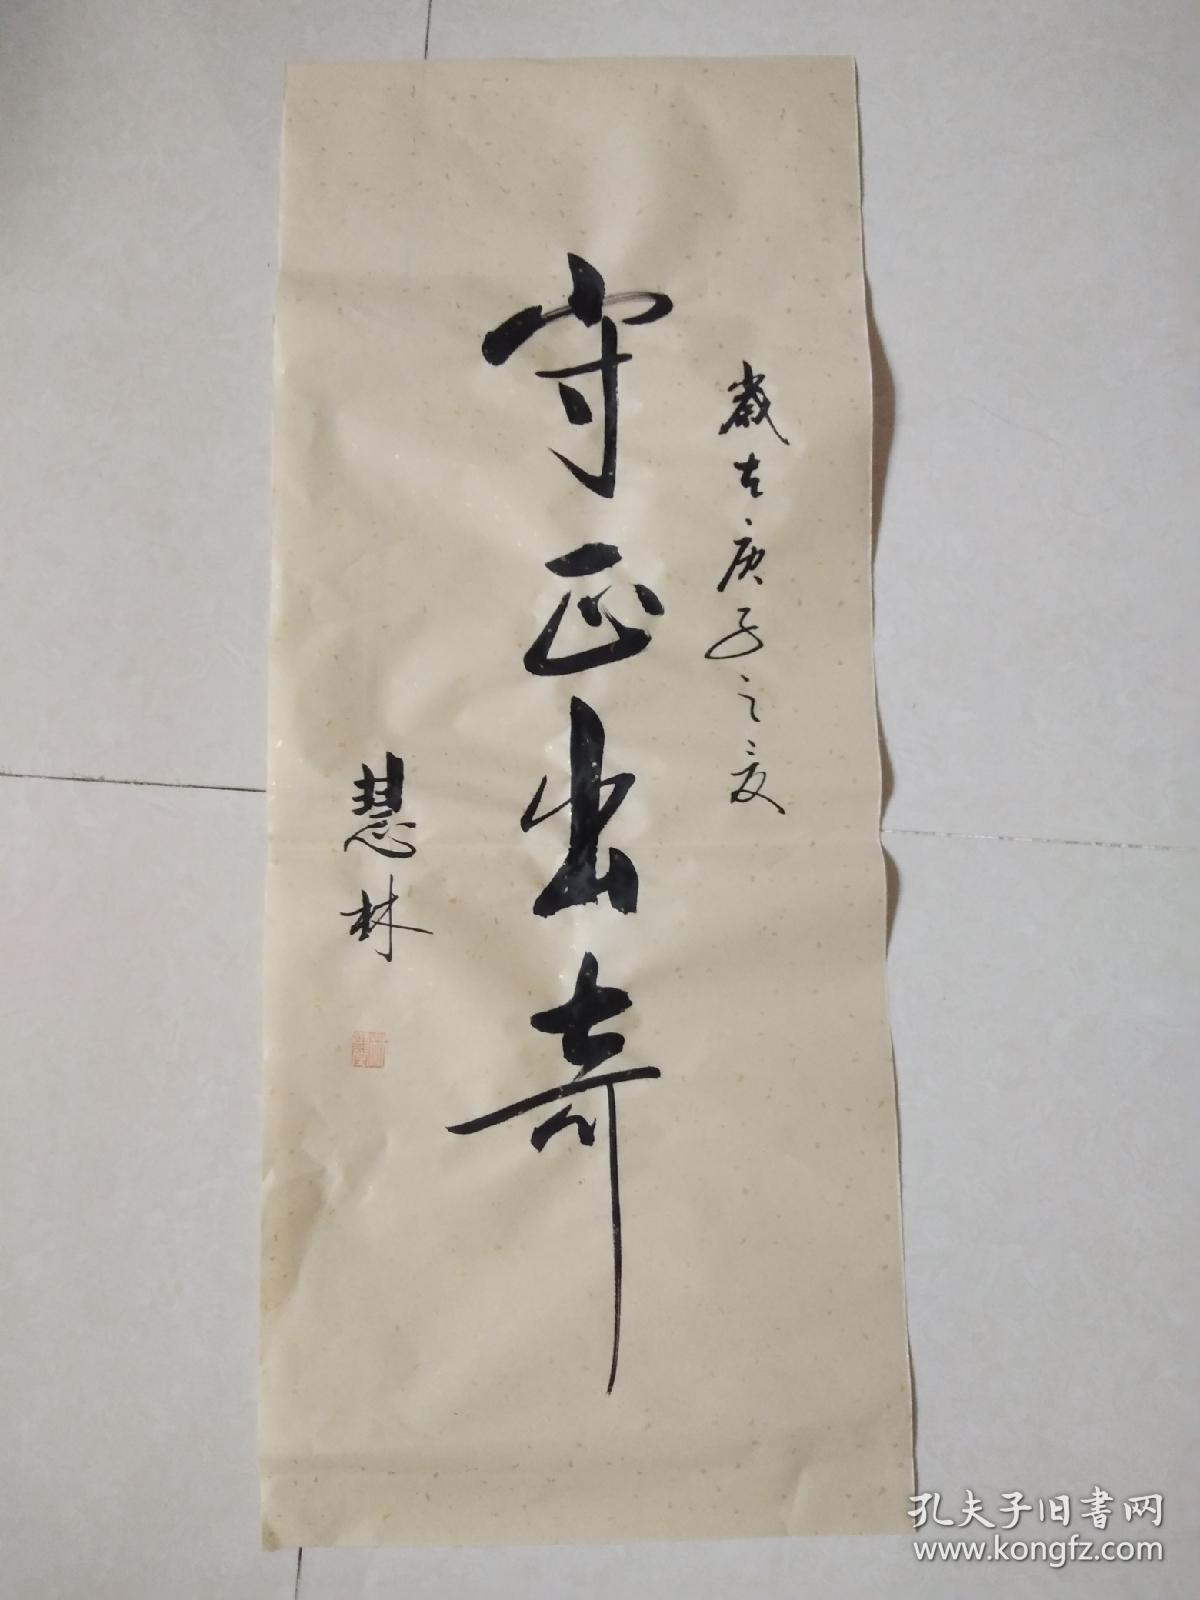 歲在庚子之夏
守正出奇
慧林
孔夫子旧书网
www.kongfz.com